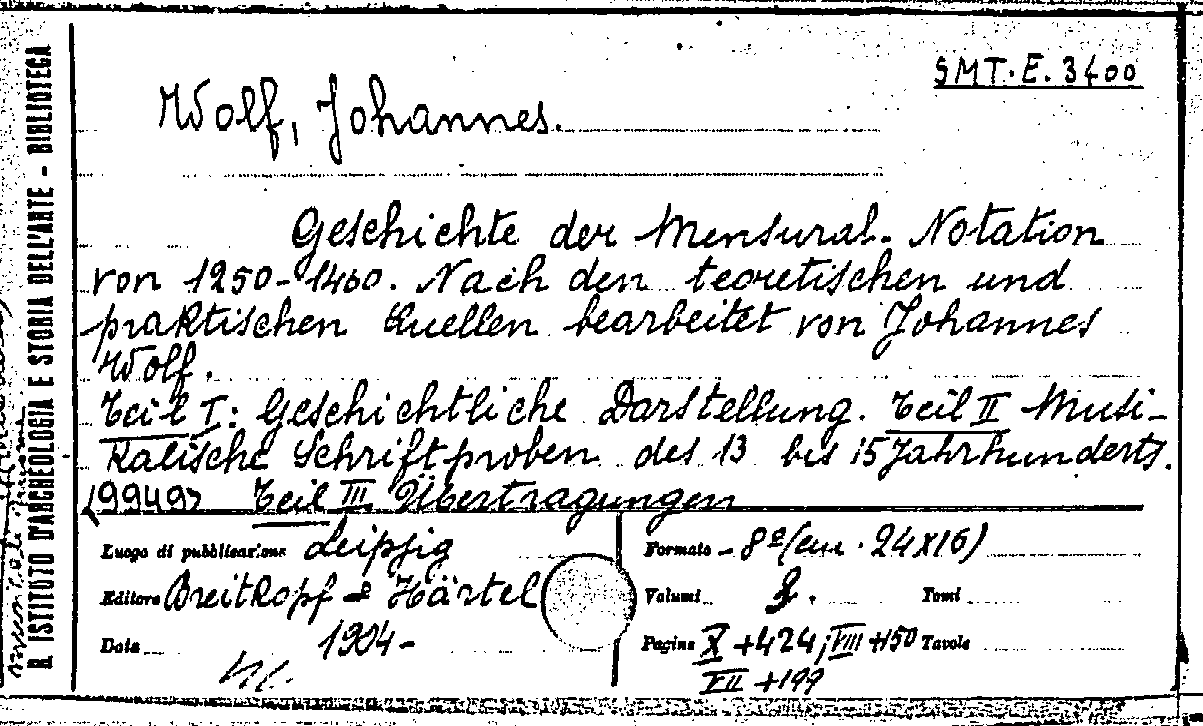 SMT. E. 3400
Wolf, Johannes.
Geschichte der Mensural-Notation
von 1250-1460. Nach den teoretischen und
praktischen Quellen bearbeitet von Johannes
Wolf.
Teil I: Geschichtliche Darstellung. Teil II Musi-
kalische Schriftproben des 13 bis 15 Jahrhunderts.
Teil III. Übertragungen
Luogo di pubblicazione Leipzig
Editore Breitkopf & Härtel
Data 1904-
Formato - 8º (cm. 24x16)
Volumi Tomi
Pagine X + 424; VIII + 150 Tavole
VII + 199
R. ISTITUTO D'ARCHEOLOGIA E STORIA DELL'ARTE - BIBLIOTECA